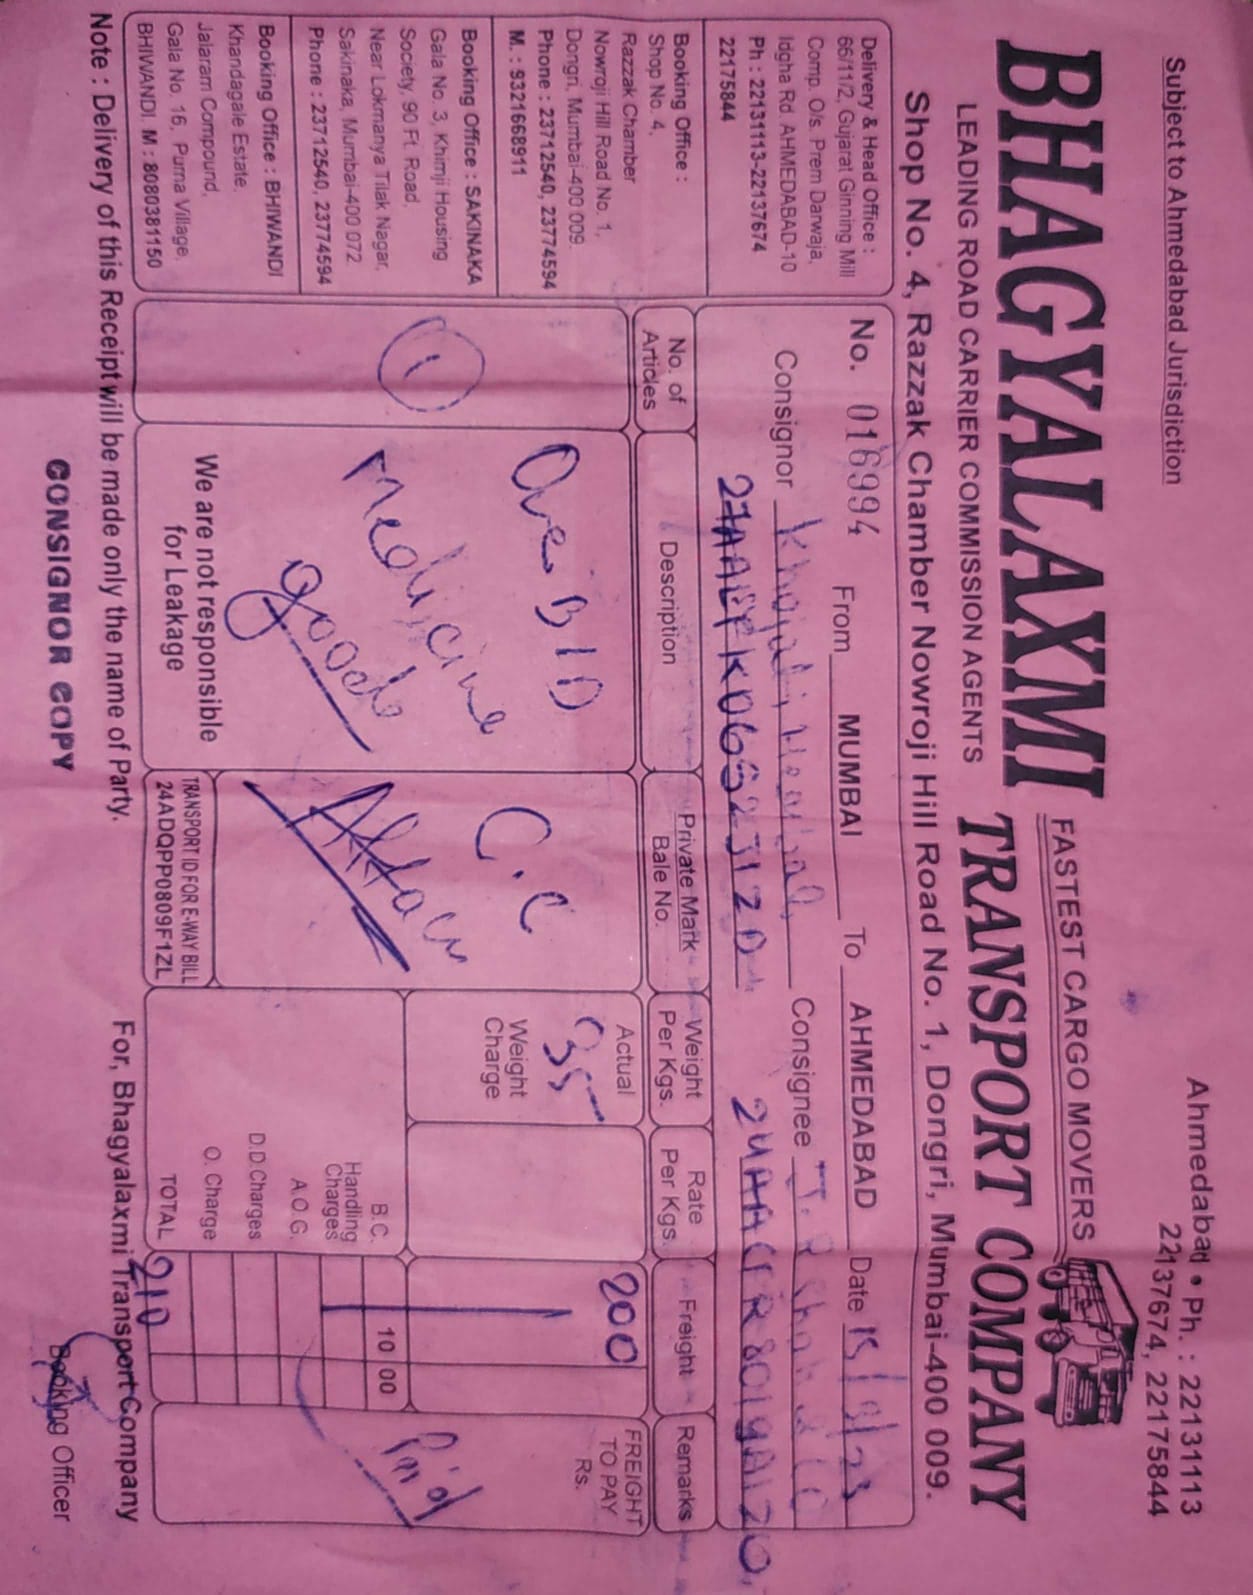 Subject to Ahmedabad Jurisdiction
Ahmedabad • Ph. : 22131113
22137674, 22175844
BHAGYALAXMI
FASTEST CARGO MOVERS
TRANSPORT COMPANY
LEADING ROAD CARRIER COMMISSION AGENTS
Shop No. 4, Razzak Chamber Nowroji Hill Road No. 1, Dongri, Mumbai-400 009.
Delivery & Head Office :
66/11/2, Gujarat Ginning Mill
Comp. O/s. Prem Darwaja,
Idgha Rd. AHMEDABAD-10
Ph : 22131113-22137674
22175844
Booking Office :
Shop No. 4,
Razzak Chamber
Nowroji Hill Road No. 1,
Dongri, Mumbai-400 009.
Phone : 23712540, 23774594
M. : 9321668911
Booking Office : SAKINAKA
Gala No. 3, Khimji Housing
Society, 90 Ft. Road,
Near Lokmanya Tilak Nagar,
Sakinaka, Mumbai-400 072.
Phone : 23712540, 23774594
Booking Office : BHIWANDI
Khandagale Estate,
Jalaram Compound,
Gala No. 16, Purna Village,
BHIWANDI. M : 8080381150
No. 016994 From MUMBAI To AHMEDABAD Date
Consignor Consignee
No. of
Articles
Description
Private Mark
Bale No.
Weight
Per Kgs.
Rate
Per Kgs.
Freight
Remarks
1
medicine
goods
We are not responsible
for Leakage
C.C
TRANSPORT ID FOR E-WAY BILL
24ADQPP0809F1ZL
Actual
35
Weight
Charge
200
B.C. 10 00
Handling
Charges
A.O.G.
D.D.Charges
O. Charge
TOTAL 210
FREIGHT
TO PAY
Rs.
Paid
Note : Delivery of this Receipt will be made only the name of Party.
For, Bhagyalaxmi Transport Company
CONSIGNOR COPY
Booking Officer